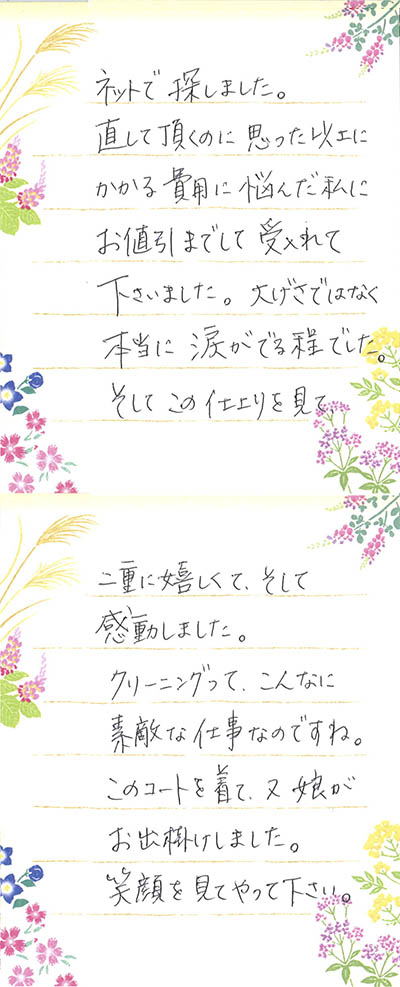 ネットで探しました。
直して頂くのに思った以上に
かかる費用に悩んだ私に
お値引までして受入れて
下さいました。大げさではなく
本当に涙がでる程でした。
そしてこの仕上りを見て、
二重に嬉しくて、そして
感動しました。
クリーニングって、こんなに
素敵な仕事なのですね。
このコートを着て、又娘が
お出掛けしました。
笑顔を見てやって下さい。